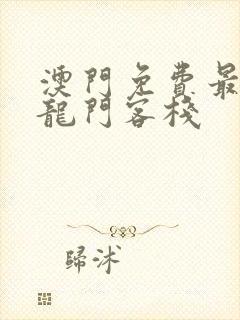 澳門免費最
龍門客棧
歸沭